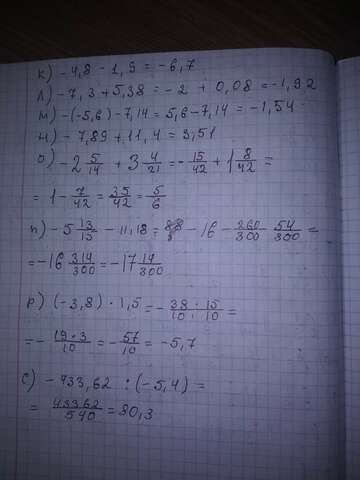 к) -4,8 - 1,9 = -6,7
л) -7,3 + 5,38 = -2 + 0,08 = -1,92
м) -(-5,6) - 7,14 = 5,6 - 7,14 = -1,54
н) -7,89 + 11,4 = 3,51
о) -2 5/14 + 3 4/21 = -15/42 + 1 8/42 =
= 1 - 7/42 = 35/42 = 5/6
п) -5 13/15 - 11,18 = - 16 - 260/300 54/300 =
= -16 314/300 = -17 14/300
р) (-3,8) · 1,5 = - 38 · 15/10 · 10 =
= - 19 * 3/10 = - 57/10 = -5,7
с) -433,62 : (-5,4) =
= 43362/540 = 80,3